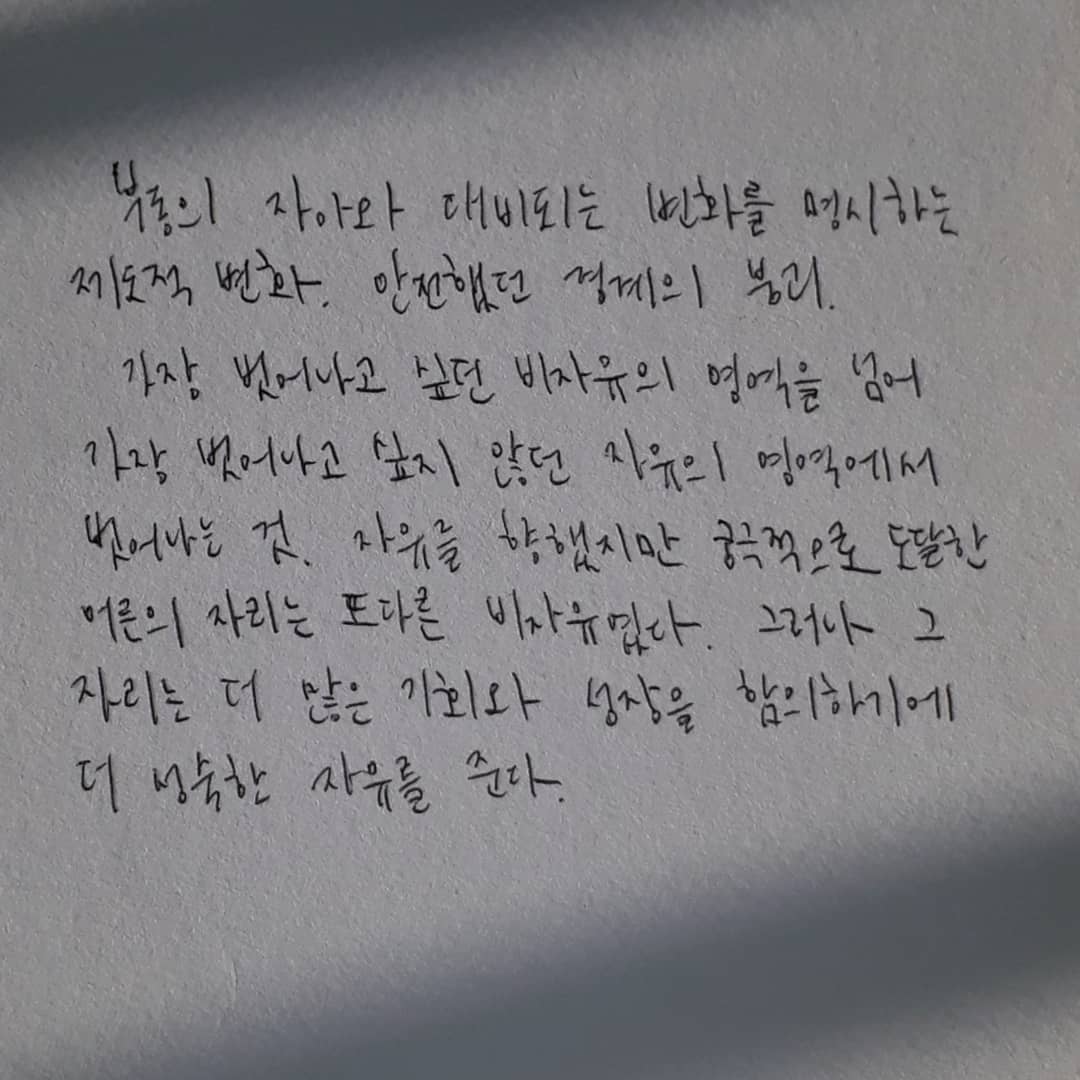 부동의 자아와 대비되는 변화를 명시하는
제도적 변화. 안전했던 경계의 붕괴.
가장 벗어나고 싶던 비자유의 영역을 넘어
가장 벗어나고 싶지 않던 자유의 영역에서
벗어나는 것. 자유를 향했지만 궁극적으로 도달한
어른의 자리는 또다른 비자유였다. 그러나 그
자리는 더 많은 기회와 성장을 함의하기에
더 성숙한 자유를 준다.